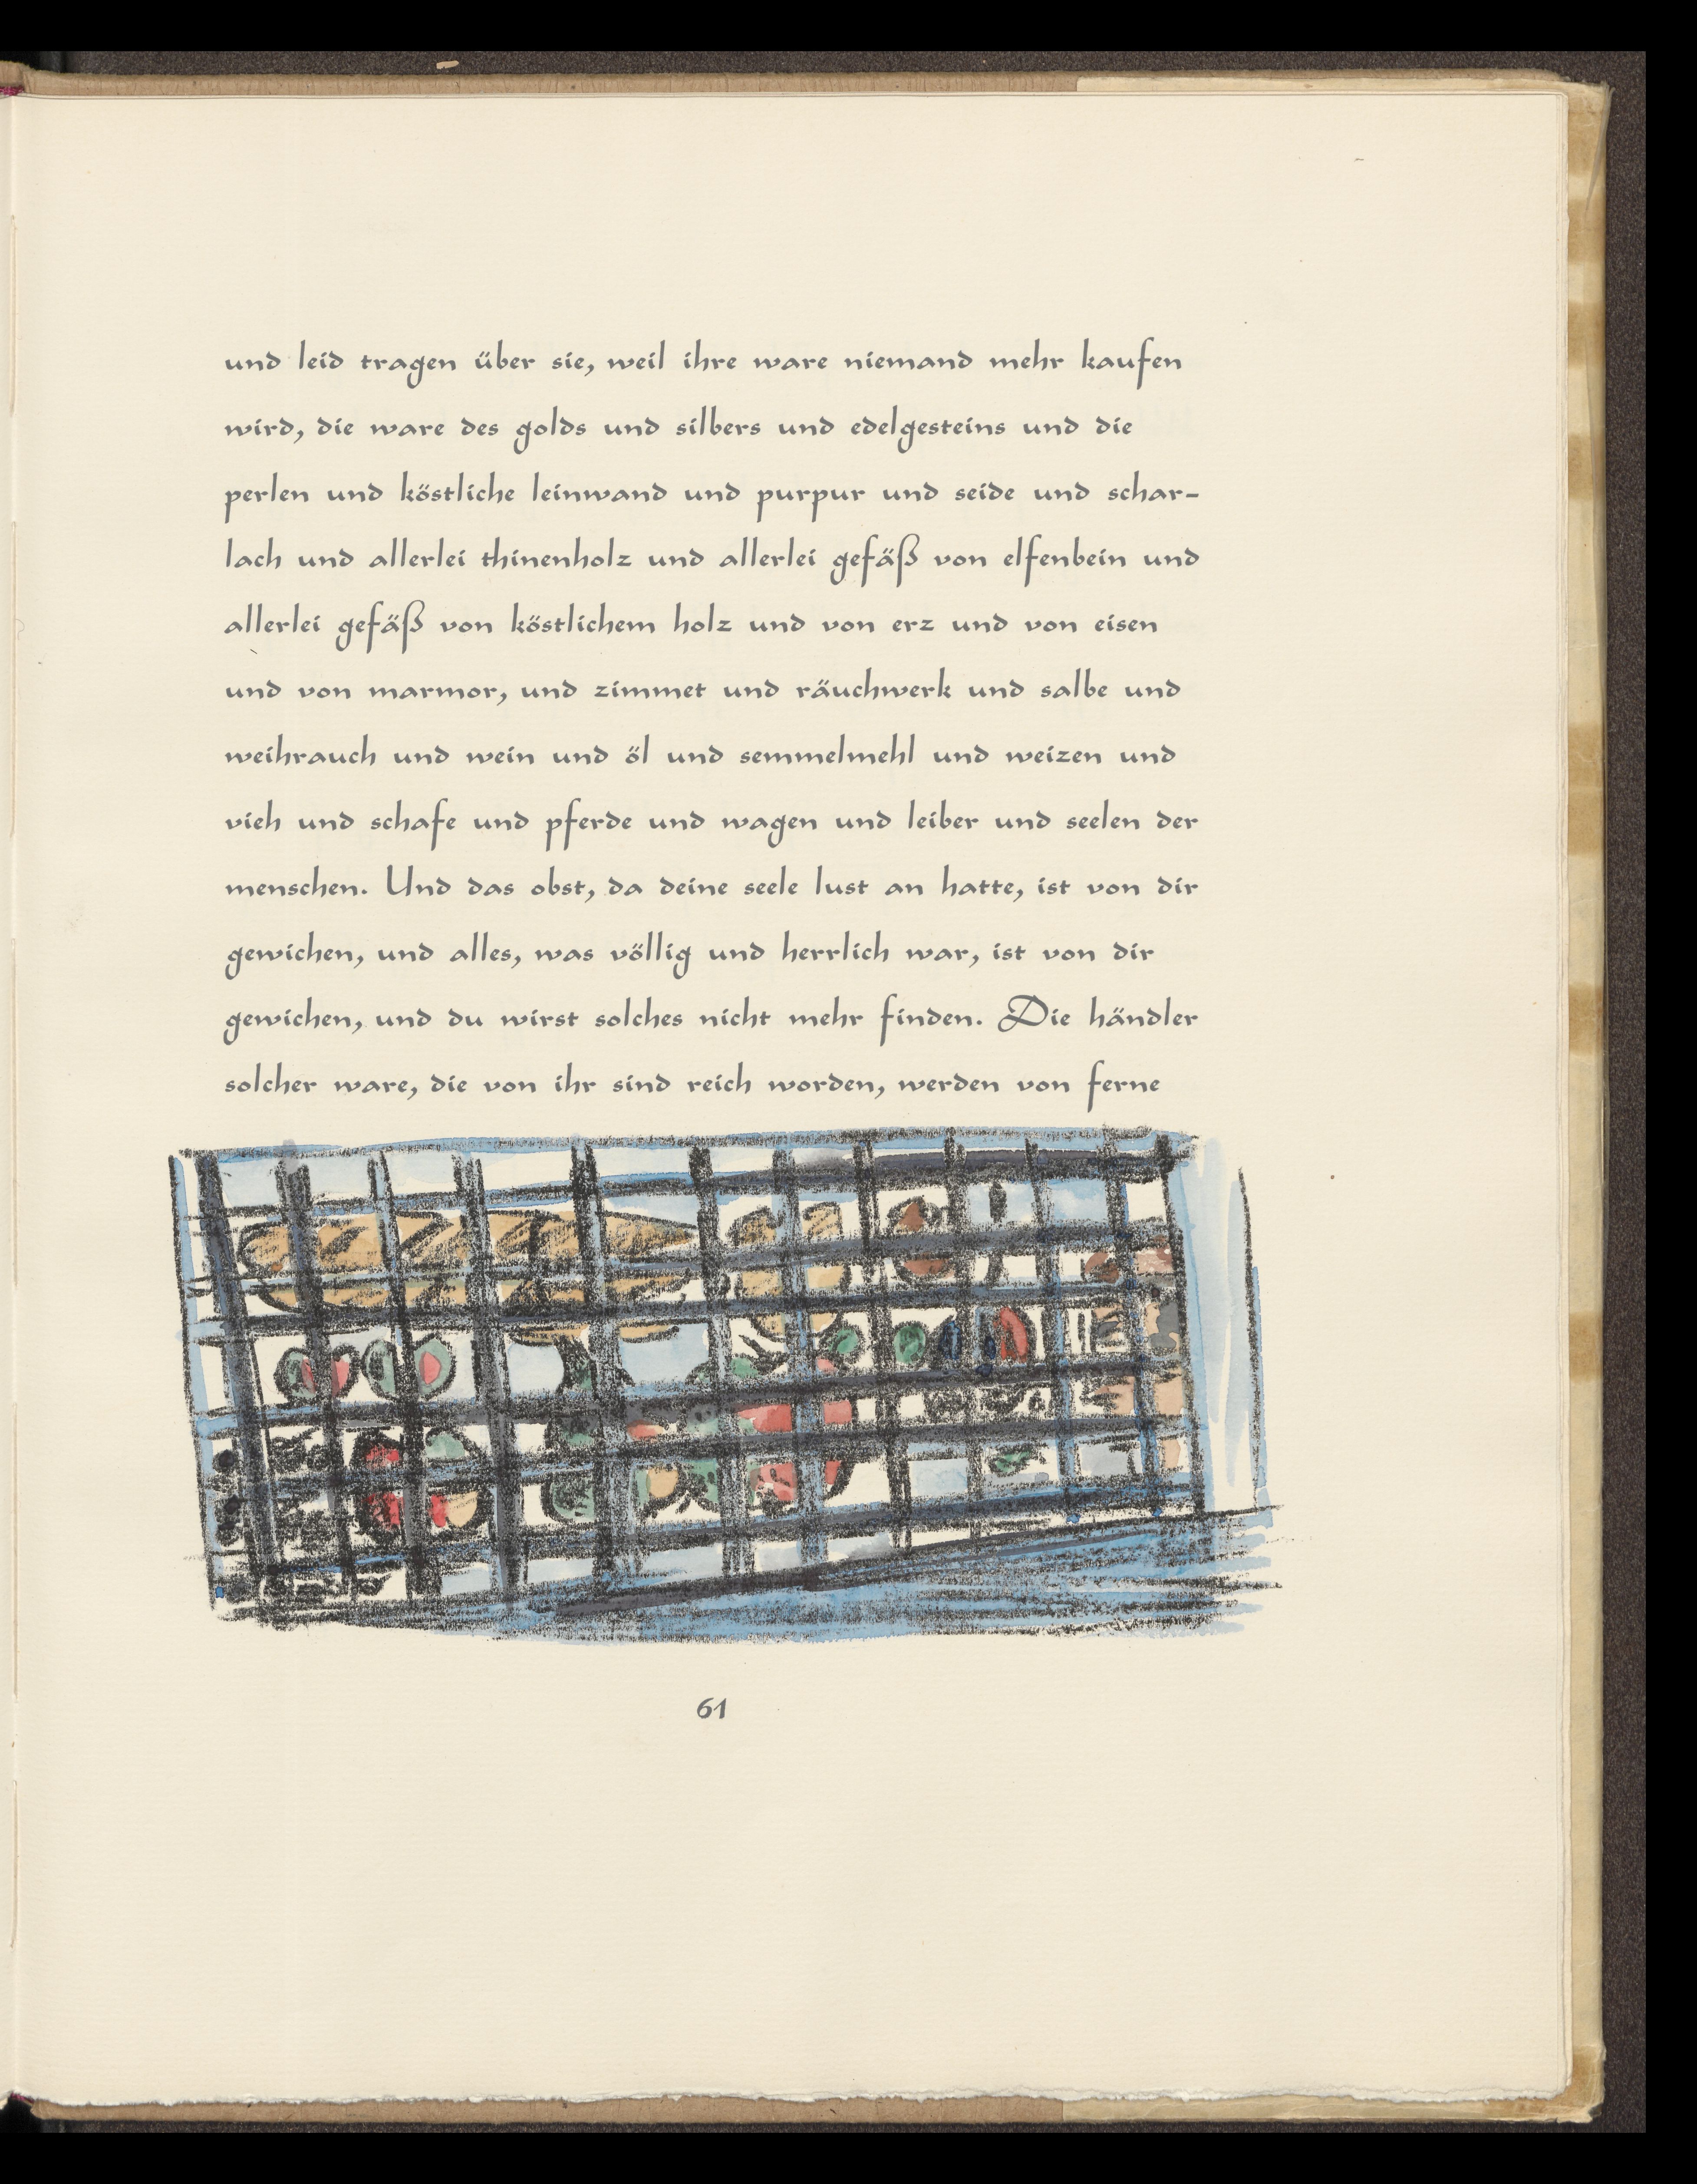 und leid tragen über sie, weil ihre ware niemand mehr kaufen
wird, die ware des golds und silbers und edelgesteins und die
perlen und köstliche leinwand und purpur und seide und schar-
lach und allerlei thinenholz und allerlei gefäß von elfenbein und
allerlei gefäß von köstlichem holz und von erz und von eisen
und von marmor, und zimmet und räuchwerk und salbe und
weihrauch und wein und öl und semmelmehl und weizen und
vieh und schafe und pferde und wagen und leiber und seelen der
menschen. Und das obst, da deine seele lust an hatte, ist von dir
gewichen, und alles, was völlig und herrlich war, ist von dir
gewichen, und du wirst solches nicht mehr finden. Die händler
solcher ware, die von ihr sind reich worden, werden von ferne
61